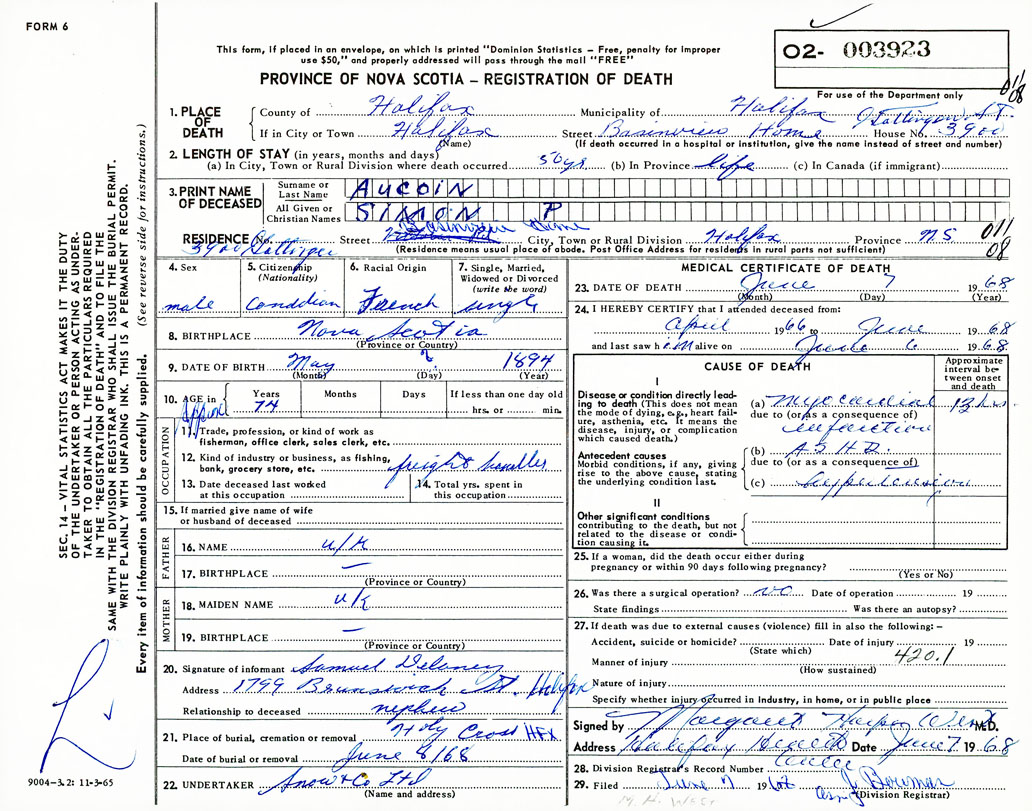 FORM 6
This form, if placed in an envelope, on which is printed "Dominion Statistics – Free, penalty for improper
use $50," and properly addressed will pass through the mail "FREE"
PROVINCE OF NOVA SCOTIA – REGISTRATION OF DEATH
O2- 003923
For use of the Department only
011
08
1. PLACE OF DEATH
County of Halifax Municipality of Halifax
If in City or Town Halifax Street Basinview Home House No. 3900
(Name) (If death occurred in a hospital or institution, give the name instead of street and number)
2. LENGTH OF STAY (in years, months and days)
(a) In City, Town or Rural Division where death occurred 50 yrs (b) In Province life (c) In Canada (if immigrant)
3. PRINT NAME OF DECEASED
Surname or Last Name AUCOIN
All Given or Christian Names SIMON P
Basinview Home
RESIDENCE No. 3900 Street City, Town or Rural Division Halifax Province N.S
(Residence means usual place of abode. Post Office Address for residents in rural parts not sufficient)
011
08
4. Sex male
5. Citizenship (Nationality) Canadian
6. Racial Origin French
7. Single, Married, Widowed or Divorced (write the word) single
8. BIRTHPLACE Nova Scotia
(Province or Country)
9. DATE OF BIRTH May ? 1894
(Month) (Day) (Year)
10. AGE in Years 74 Months Days If less than one day old
hrs. or min.
OCCUPATION
11. Trade, profession, or kind of work as
fisherman, office clerk, sales clerk, etc.
12. Kind of industry or business, as fishing,
bank, grocery store, etc. freight handler
13. Date deceased last worked
at this occupation
14. Total yrs. spent in
this occupation
15. If married give name of wife
or husband of deceased
FATHER
16. NAME u/k
17. BIRTHPLACE —
(Province or Country)
MOTHER
18. MAIDEN NAME u/k
19. BIRTHPLACE —
(Province or Country)
20. Signature of informant Samuel Deleney
Address 1799 Brunswick St. Halifax
Relationship to deceased nephew
21. Place of burial, cremation or removal Holy Cross HFX
Date of burial or removal June 8/68
22. UNDERTAKER Snow & Co Ltd
(Name and address)
MEDICAL CERTIFICATE OF DEATH
23. DATE OF DEATH June 7 1968
(Month) (Day) (Year)
24. I HEREBY CERTIFY that I attended deceased from:
April 1966 to June 1968
and last saw him alive on June 6 1968
CAUSE OF DEATH
Approximate interval between onset and death
I
Disease or condition directly leading to death (This does not mean
the mode of dying, e.g., heart failure, asthenia, etc. It means the
disease, injury, or complication
which caused death.)
(a) Myocardial 12 hrs.
due to (or as a consequence of)
infarction
Antecedent causes
Morbid conditions, if any, giving
rise to the above cause, stating
the underlying condition last.
(b) A.S.H.D.
due to (or as a consequence of)
(c) hypertension
II
Other significant conditions
contributing to the death, but not
related to the disease or condition causing it.
25. If a woman, did the death occur either during
pregnancy or within 90 days following pregnancy?
(Yes or No)
26. Was there a surgical operation? no Date of operation 19
State findings Was there an autopsy?
27. If death was due to external causes (violence) fill in also the following: –
Accident, suicide or homicide? Date of injury 19
(State which)
420.1
Manner of injury
(How sustained)
Nature of injury
Specify whether injury occurred in industry, in home, or in public place
Signed by Margaret M.D.
Address Halifax Health Date June 7 1968
28. Division Registrar's Record Number
29. Filed June 7 1968
(Division Registrar)
SEC. 14 – VITAL STATISTICS ACT MAKES IT THE DUTY
OF THE UNDERTAKER OR PERSON ACTING AS UNDER-
TAKER TO OBTAIN ALL THE PARTICULARS REQUIRED
IN THE "REGISTRATION OF DEATH" AND TO FILE THE
SAME WITH THE DIVISION REGISTRAR WHO SHALL ISSUE THE BURIAL PERMIT.
WRITE PLAINLY WITH UNFADING INK. THIS IS A PERMANENT RECORD.
Every item of information should be carefully supplied. (See reverse side for instructions.)
9004-3.2: 11-3-65